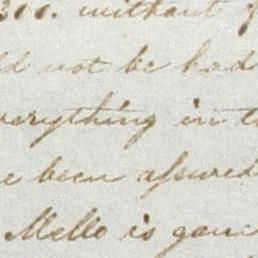 300. without
ld not be had
verything in t
e been assured
Mello is gone